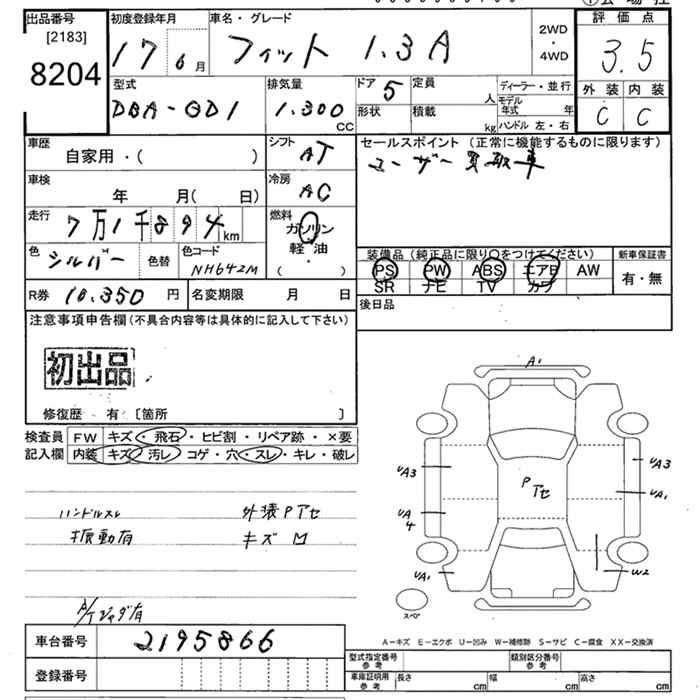 出品番号 [2183] 8204
初度登録年月 17 6月
車名・グレード フィット 1.3A
2WD・4WD
評価点 3.5
外装 C 内装 C
型式 DBA-GD1
排気量 1.300 CC
ドア 5 定員 人
形状 積載 kg
ディーラー・並行
モデル年式 年
ハンドル 左・右
車歴 自家用・( )
シフト AT
セールスポイント (正常に機能するものに限ります)
ユーザー買取車
車検 年 月( 日)
冷房 AC
走行 7万1千894km
燃料 ガソリン 軽油 ・( )
色 シルバー 色替
色コード NH642M
装備品(純正品に限り○をつけてください)
PS PW ABS エアB AW
SR ナビ TV カワ
新車保証書 有・無
R券 10.350円 名変期限 月 日
後日品
注意事項申告欄(不具合内容等は具体的に記入して下さい)
初出品
修復歴 有〔箇所 〕
検査員記入欄
FW キズ・飛石・ヒビ割・リペア跡・×要
内装 キズ・汚レ・コゲ・穴・スレ・キレ・破レ
ハンドルスレ 外装PTセ
振動有 キズ凹
A/Tジャダ有
A1
UA3
UA4
UA1
PTセ
UA3
UA1
W2
スペア
A-キズ E-エクボ U-凹み W-補修跡 S-サビ C-腐食 XX-交換済
車台番号 2195866
登録番号
型式指定番号 参考 類別区分番号 参考
車庫証明用 参考 長さ cm 幅 cm 高さ cm